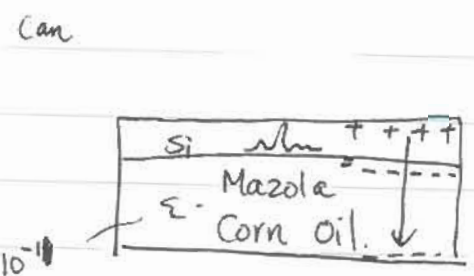 Can
+ + + +
Si
Mazola
ε.
Corn Oil.
10⁻¹